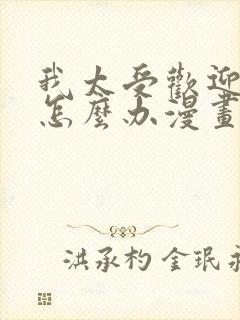 我太受歡迎
怎麼办漫畫
洪承杓 金珉永